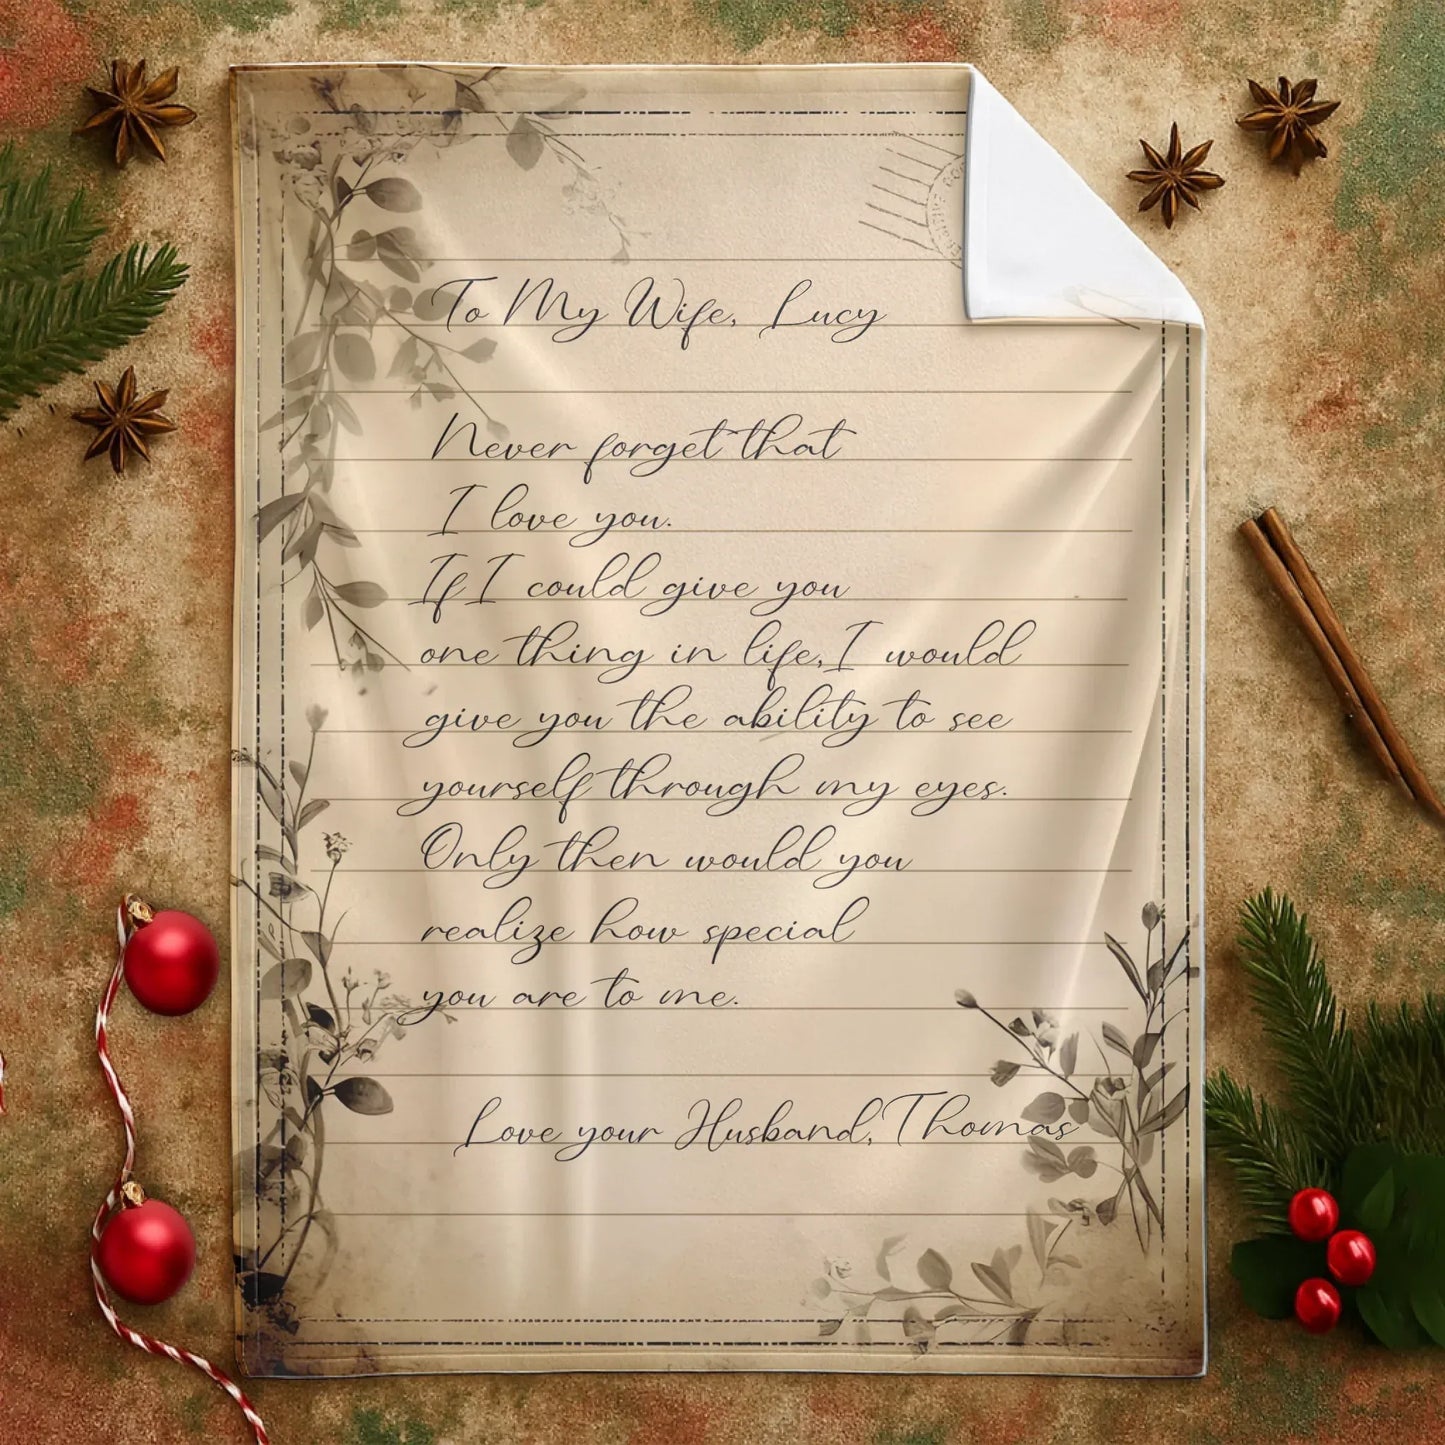 To My Wife, Lucy
Never forget that
I love you.
If I could give you
one thing in life, I would
give you the ability to see
yourself through my eyes.
Only then would you
realize how special
you are to me.
Love your Husband, Thomas